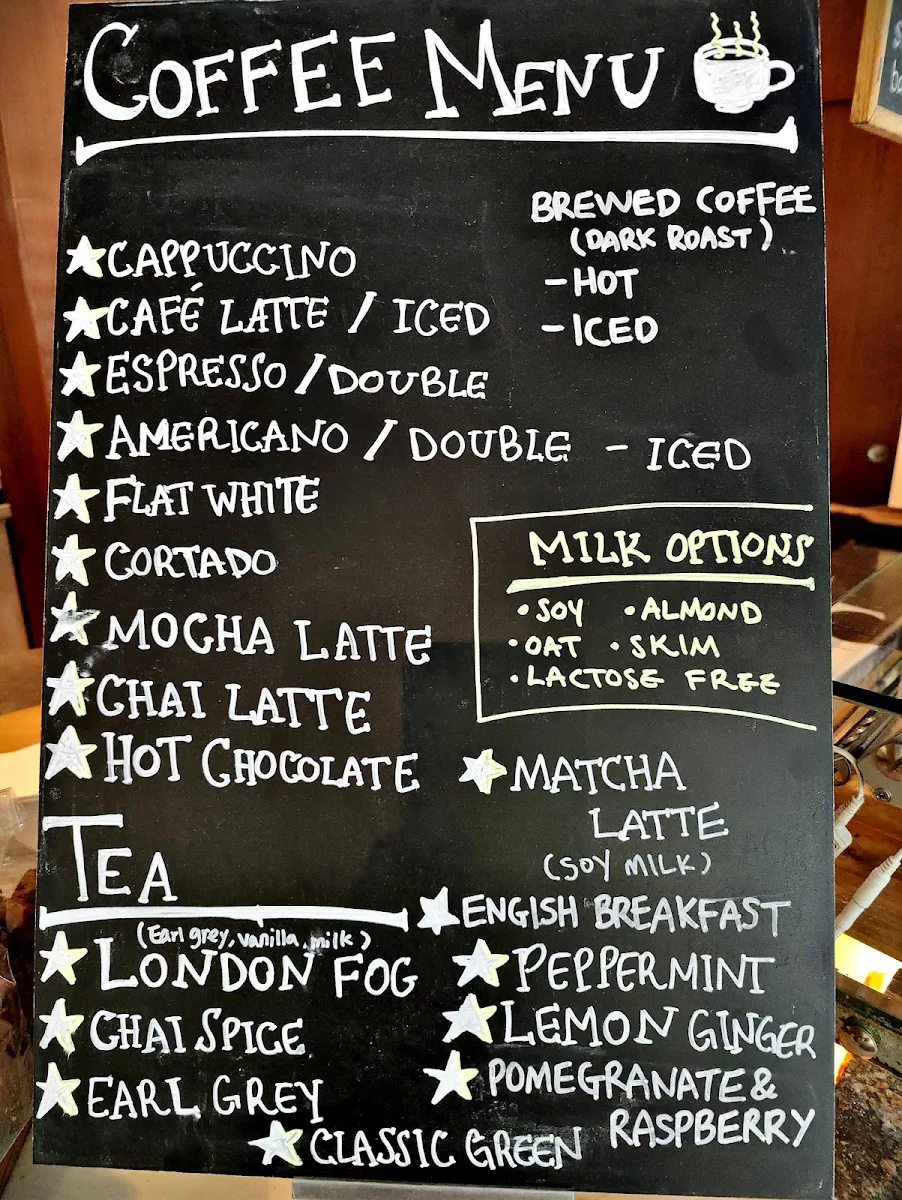 COFFEE MENU
BREWED COFFEE
(DARK ROAST)
- HOT
- ICED
CAPPUCCINO
CAFÉ LATTE / ICED
ESPRESSO / DOUBLE
AMERICANO / DOUBLE - ICED
FLAT WHITE
CORTADO
MOCHA LATTE
CHAI LATTE
HOT CHOCOLATE
MILK OPTIONS
• SOY • ALMOND
• OAT • SKIM
• LACTOSE FREE
MATCHA
LATTE
(SOY MILK)
TEA
(Earl grey, vanilla, milk)
LONDON FOG
CHAI SPICE
EARL GREY
CLASSIC GREEN
ENGISH BREAKFAST
PEPPERMINT
LEMON GINGER
POMEGRANATE &
RASPBERRY